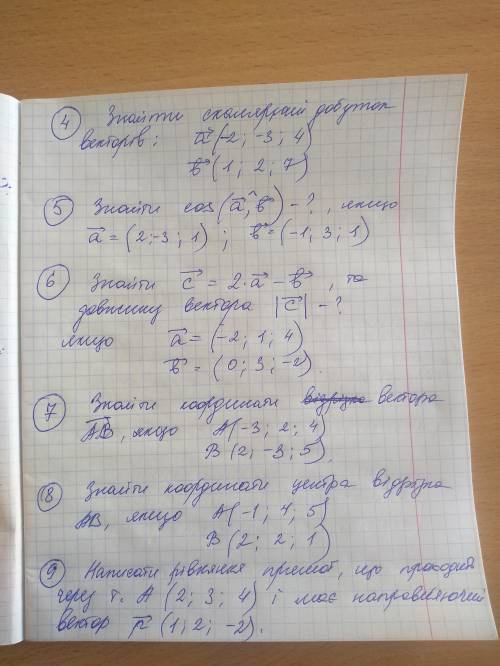 4 Знайти скалярний добуток
векторів: a (-2; -3; 4)
b (1; 2; 7)
5 Знайти cos(a,^b) - ?, якщо
a = (2; -3; 1) ; b = (-1; 3; 1)
6 Знайти c = 2·a - b, та
довжину вектора |c| - ?
якщо a = (-2; 1; 4)
b = (0; 3; -2).
7 Знайти координати відрізка вектора
AB, якщо A(-3; 2; 4)
B (2; -3; 5).
8 Знайти координати центра відрізка
AB, якщо A(-1; 4; 5)
B (2; 2; 1)
9 Написати рівняння прямої, що проходить
через т. A (2; 3; 4) і має направляючий
вектор p (1; 2; -2).